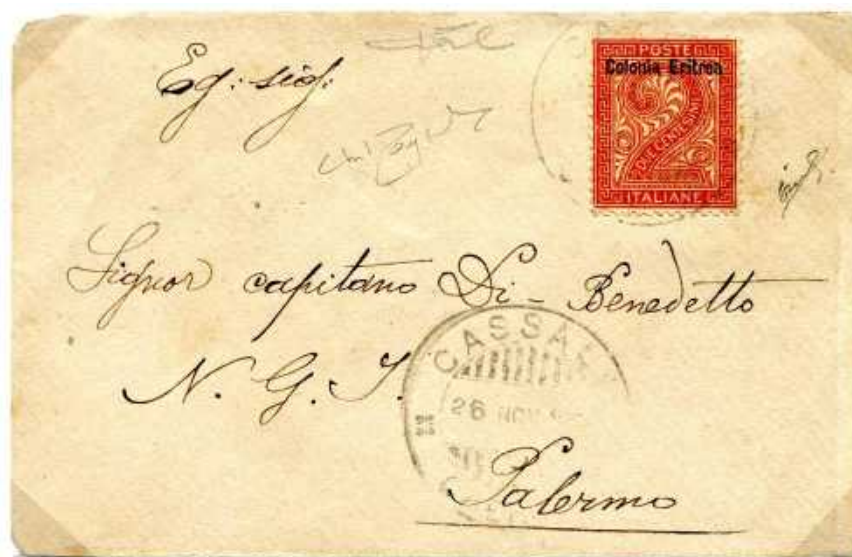 Eg: sig:
POSTE
Colonia Eritrea
DUE CENTESIMI
ITALIANE
Signor capitano Di- Benedetto
N. G. I.
CASSA
26 NOV
Palermo